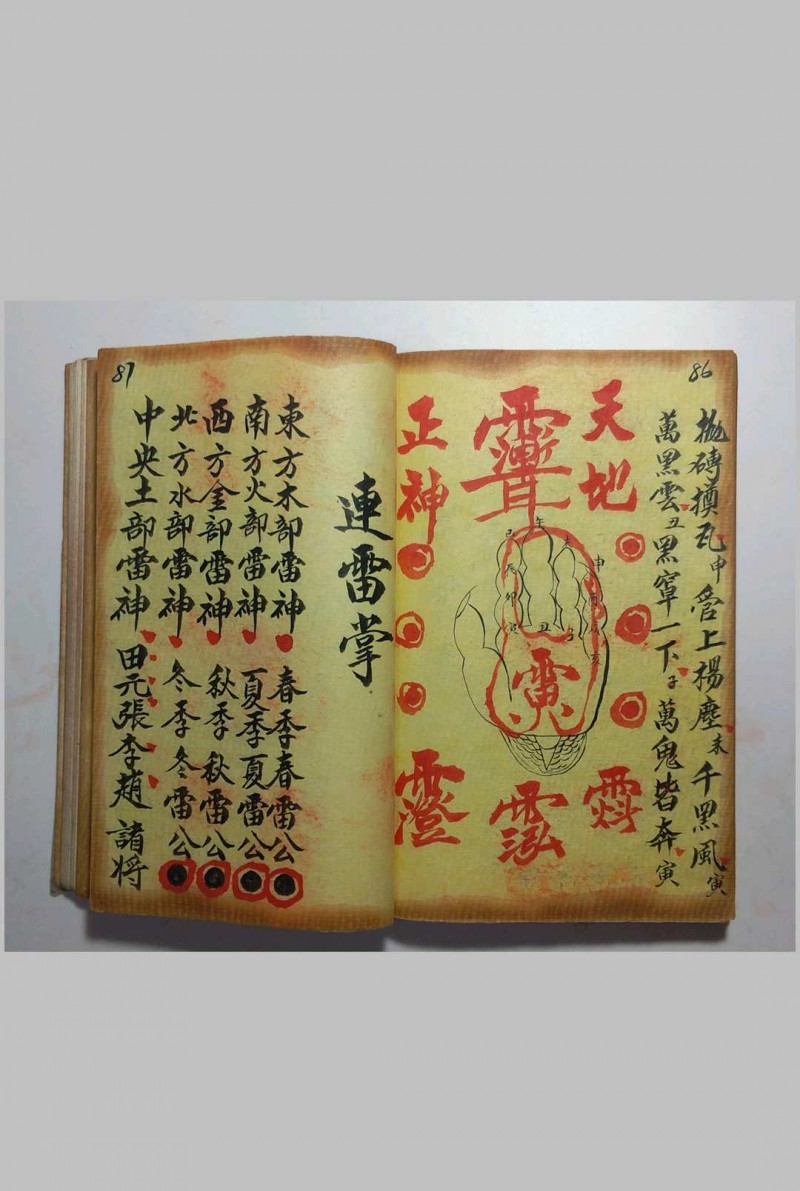 86
拋磚摸瓦申 嵤上揚塵未 千黑風寅
萬黑雲丑 黑窣一下子 萬鬼皆奔寅
天地
正神
巳 午 未 申
辰 酉
卯 戌
寅 丑 子 亥
雷
87
連雷掌
東方木部雷神 春季春雷公
南方火部雷神 夏季夏雷公
西方金部雷神 秋季秋雷公
北方水部雷神 冬季冬雷公
中央土部雷神 田元張李趙 諸将